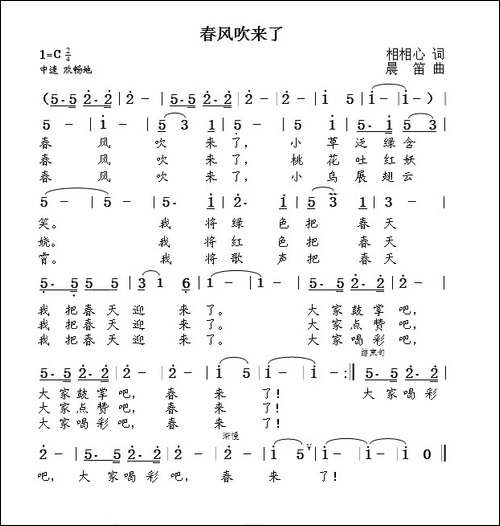 春风吹来了
1=C 2/4
相相心 词
中速 欢畅地
晨 笛 曲
(5·5 5 5 | 2·2 2·2 | 2 – | 2 – | 5·5 5 5 | 2·2 2·2 | 2 – | 2 – | 1 5 | 1 – | 1 – ) |
5 – | 1 – | 5 3 | 1 5 | 5 – | 5 – | 1 5 | 5 – | 5·1 | 5 3 |
春 风 吹 来 了, 小 草 泛 绿 含
春 风 吹 来 了, 桃 花 吐 红 妖
春 风 吹 来 了, 小 鸟 展 翅 云
5 – | 5 – | 5· 1 | 2· 2 | 1 5 3 | 1 – |
笑。 我 将 绿 色 把 春 天
娆。 我 将 红 色 把 春 天
霄。 我 将 歌 声 把 春 天
5· 5 5 5 | 3 1 6 | 1 – | 1 – | 5·5 5 5 | 2·2 2·2 |
我 把 春 天 迎 来 了。 大 家 鼓 掌 吧,
我 把 春 天 迎 来 了。 大 家 点 赞 吧,
我 把 春 天 迎 来 了。 大 家 喝 彩 吧,
结束句
5·5 5 5 | 2·2 2·2 | 2 – | 2 – | 1 5 | 1 – | 1 – :| 5·5 5 5 | 2·2 2·2 |
大 家 鼓 掌 吧, 春 来 了! 大 家 喝 彩
大 家 点 赞 吧, 春 来 了!
大 家 喝 彩 吧, 春 来 了!
渐慢
2 – | 5·5 5 5 | 2·2 2·2 | 2 – | 2 – | 1 5 | 1 – | 1 – | 1 0 ‖
吧, 大 家 喝 彩 吧, 春 来 了!